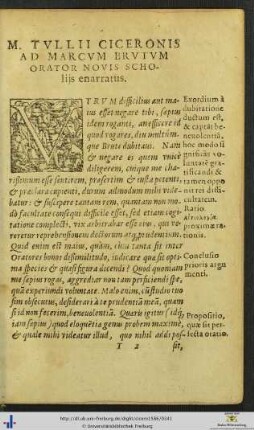 M. TVLLII CICERONIS
AD MARCVM BRVTVM
ORATOR NOVIS SCHO-
lijs enarratus.
VTRVM difficilius aut ma-
ius esset negare tibi, sæpius
idem roganti, an efficere id
quod rogares, diu multúm-
que Brute dubitaui. Nam
& negare ei quem vnicè
diligerem, cuíque me cha-
rissimum esse sentirem, præsertim & iusta petenti,
& præclara cupienti, durum admodum mihi vide-
batur: & suscipere tantam rem, quantam non mo-
dò facultate consequi difficile esset, sed etiam cogi-
tatione complecti, vix arbitrabar esse eius, qui ve-
reretur reprehensionem doctorum atque prudentium.
Quid enim est maius, quàm, cùm tanta sit inter
Oratores bonos dissimilitudo, iudicare quæ sit opti-
ma species & quasi figura dicendi? Quod quoniam
me sæpius rogas, aggrediar non tam perficiendi spe,
quàm experiundi voluntate. Malo enim, cùm studio tuo
sim obsecutus, desiderari à te prudentiã meã, quàm
si id non fecerim, beneuolentiã. Quæris igitur idq́;
iam sæpius quod eloquẽtiæ genus probem maximè,
& quale mihi videatur illud, quo nihil addi pos-
I 2 sit,
Exordium à
dubitatione
ductum est,
& captat be-
neuolentiã,
hoc modo si-
gnificãs vo-
luntatẽ gra-
tificandi &
tamen oppo-
nit rei diffi-
cultatem.
Ratio
proximæ ra-
tionis.
Conclusio
prioris argu-
menti.
Propositio,
quæ sit per-
fecta oratio.
http://dl.ub.uni-freiburg.de/diglit/cicero1566/0141
© Universitätsbibliothek Freiburg